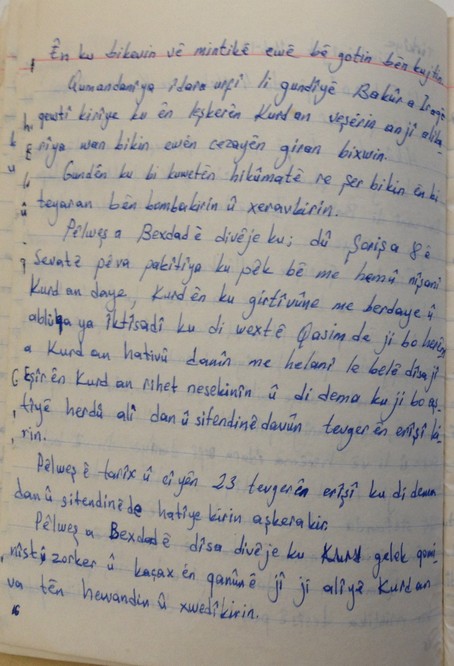 Ên ku bikevin vê mintikê ewê bê gotin bên kujtin
Qumandanîya idara urfî li gundîyê Bakûr a Iraqê
gewtî kirîye ku ên leşkerên Kurdan veşêrin anjî alîka-
rîya wan bikin ewên cezayên giran bixwin.
Gundên ku bi kuwetên hikûmatê re şer bikin ên bi
teyaran bên bombakirin û xeravkirin.
Pêlweş a Bexdadê divêje ku; dû Şorişa 8 ê
Sevatê pêva pakitîya ku pêk bê me hemû nîşanî
Kurdan daye, Kurdên ku girtîvûne me berdaye û
abluqa ya iktisadî ku di wextê Qasim de ji bo herêm
a Kurdan hativû danîn me helanî le belê dîsa jî
Eşîrên Kurdan rihet nesekinîn û di dema ku ji bo aş-
tîyê herdû alî dan û sitendinê davûn tevgerên erîşî ki-
rin.
Pêlweş ê tarîx û cîyên 23 tevgerên erîşî ku di dema
dan û sitendinê de hatîye kirin aşkera kir.
Pêlweş a Bexdadê dîsa divêje ku Kurd gelek qomi-
nîst û zorker û kaçax ên qanûnê jî ji alîyê Kurdan
va tên hewandin û xwedîkirin.
16